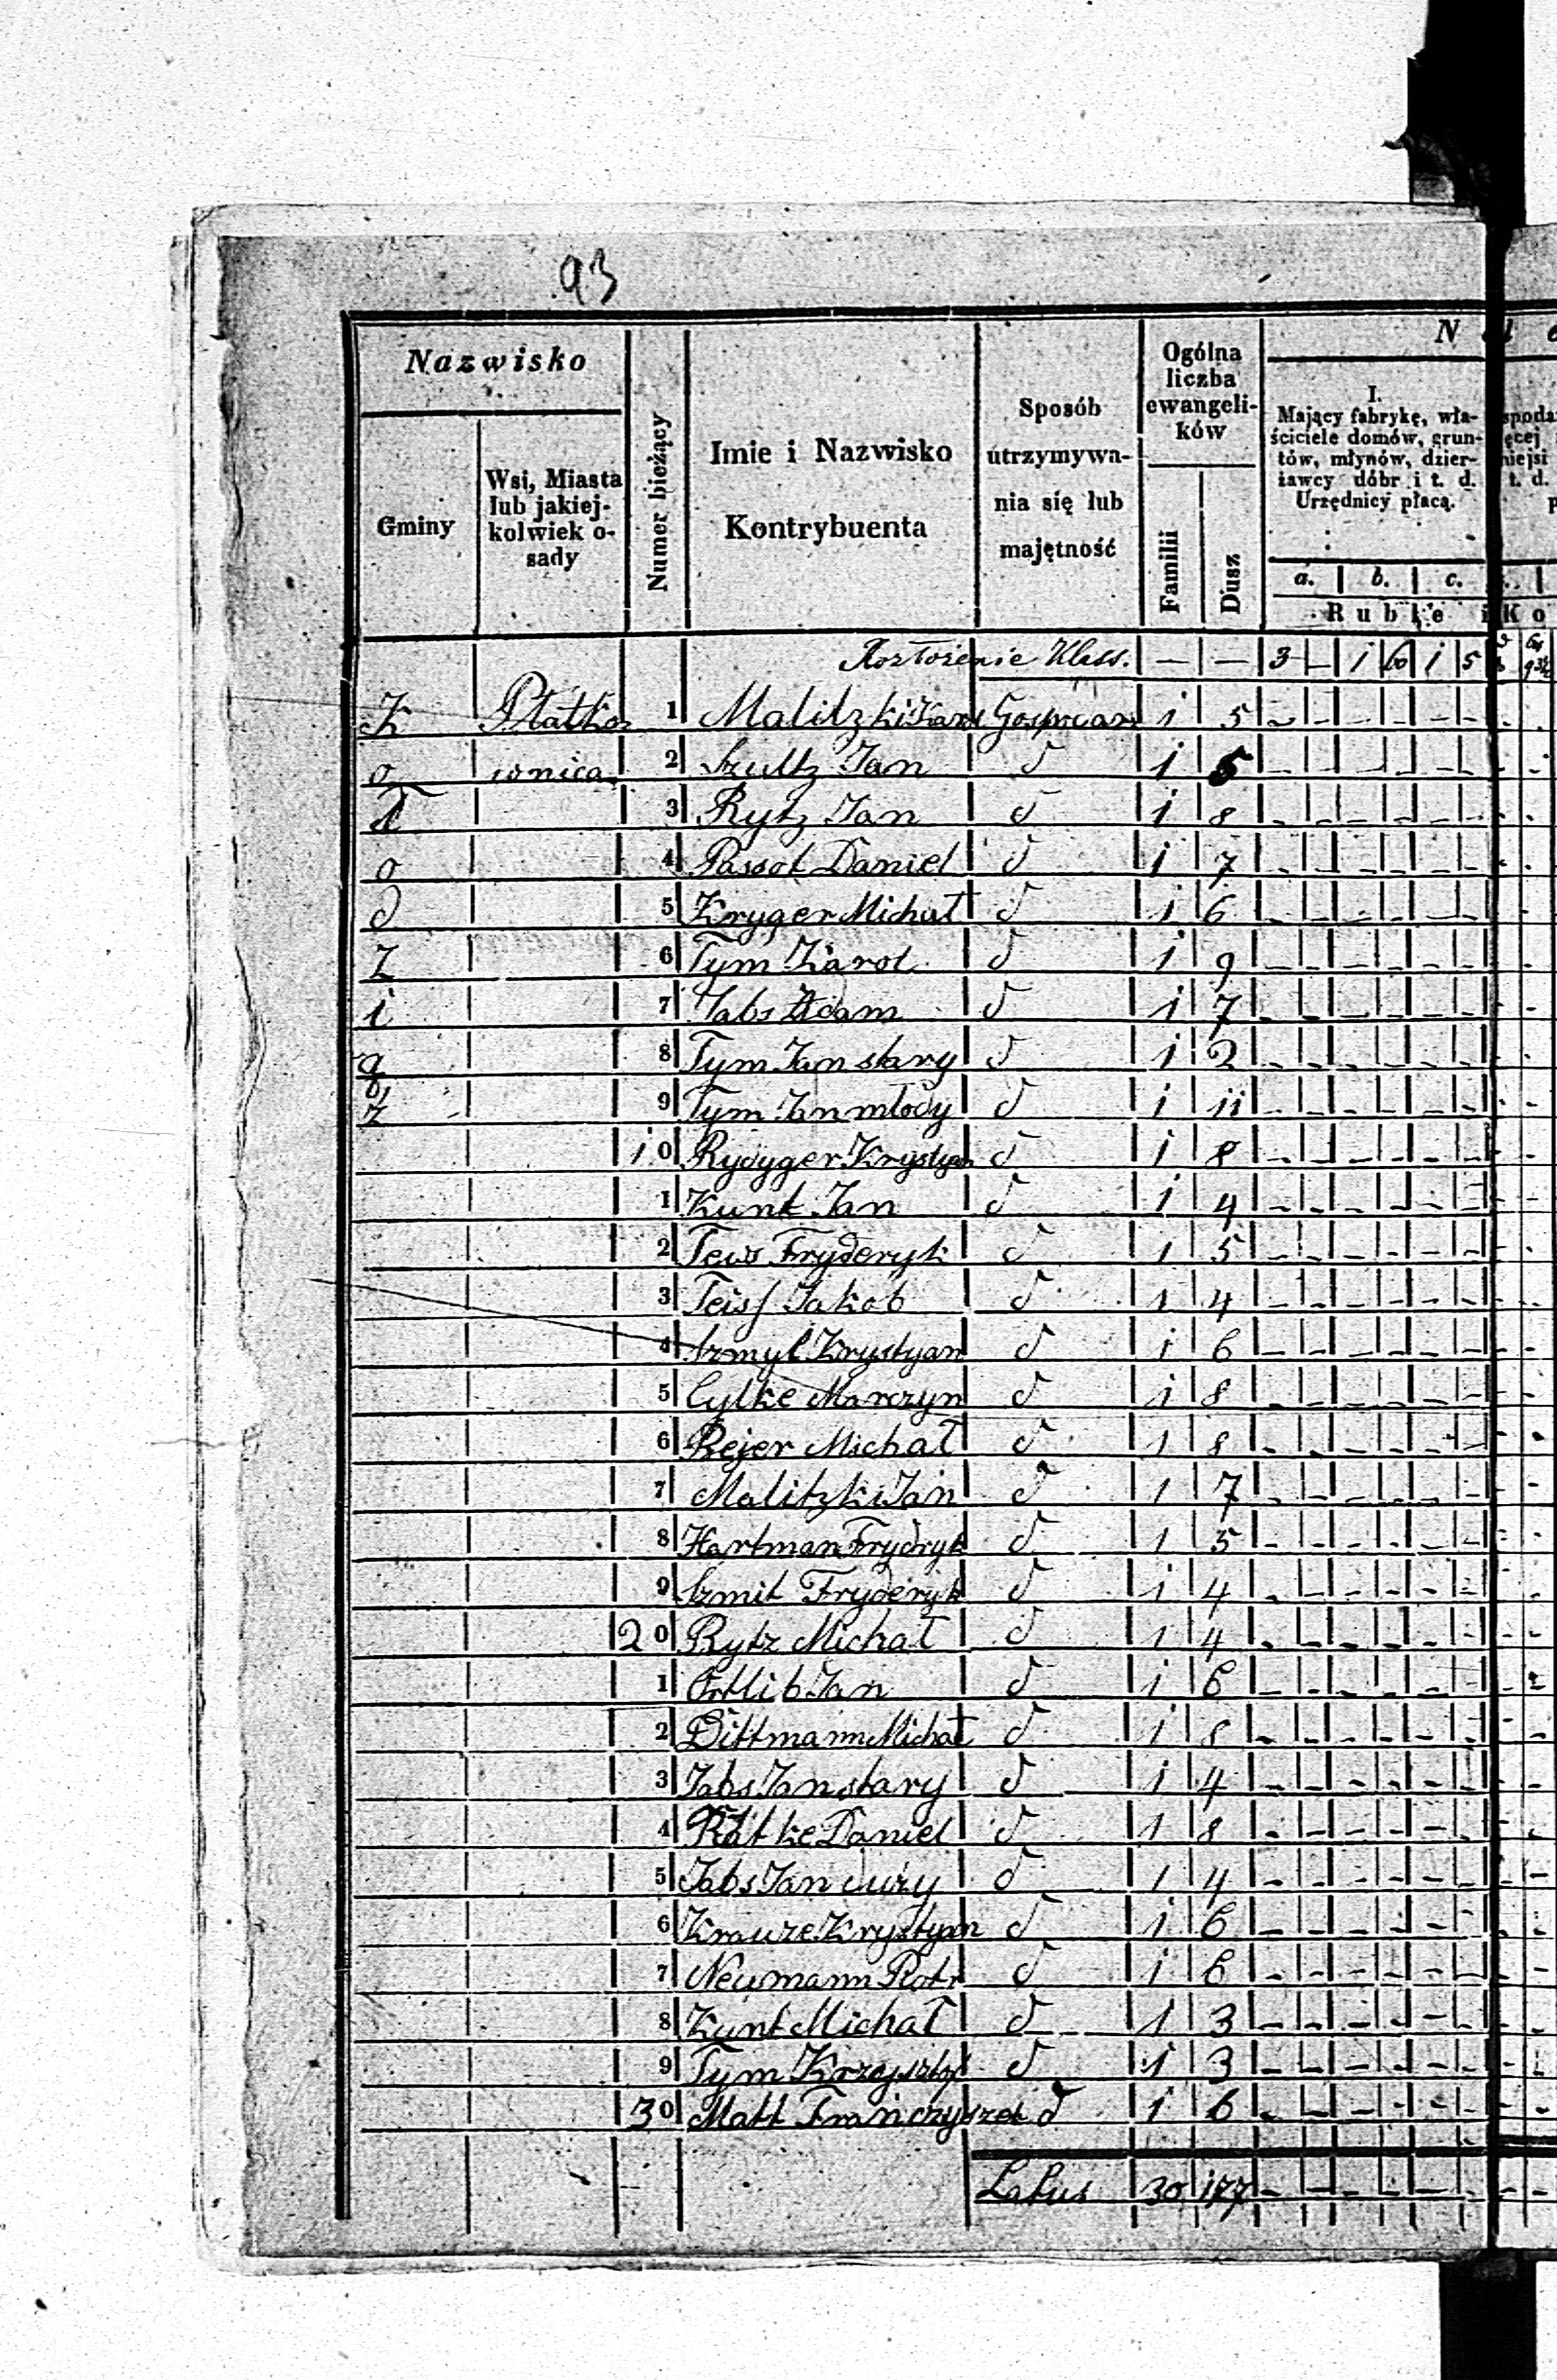 93
Nazwisko
Gminy
Wsi, Miasta lub jakiej-kolwiek o-sady
Numer bieżący
Imie i Nazwisko Kontrybuenta
Sposób utrzymywa-nia się lub majętność
Ogólna liczba ewangeli-ków
Familii
Dusz
I. Mający fabrykę, wła-ściciele domów, grun-tów, młynów, dzier-żawcy dóbr i t. d. Urzędnicy płacą.
a. b. c.
Ruble i Ko
Rozłożenie Klass. — — 3 — 1 60 1 5
K Płatko 1 Malitzki Karol Gospodarz 1 5
o wnica 2 Szultz Jan d 1 5
3 Rytz Jan d 1 8
o 4 Passot Daniel d 1 7
d 5 Kryger Michał d 1 6
z 6 Tym Karol d 1 9
i 7 Jabs Adam d 1 7
ą 8 Tym Jan stary d 1 2
z 9 Tym Jan młody d 1 11
10 Rydyger Krystyan d 1 8
1 Kunt Jan d 1 4
2 Tews Fryderyk d 1 5
3 Teiss Jakob d 1 4
4 Szmyl Krystyan d 1 6
5 Cylke Marczyn d 1 8
6 Rejer Michał d 1 8
7 Malitzki Jan d 1 7
8 Hartman Frydryk d 1 5
9 Szmit Fryderyk d 1 4
20 Rytz Michał d 1 4
1 Ortlib Jan d 1 6
2 Dittmann Michał d 1 8
3 Jabs Jan stary d 1 4
4 Ratke Daniel d 1 8
5 Jabs Jan duży d 1 4
6 Krauze Krystyan d 1 6
7 Neumann Piotr d 1 6
8 Kunt Michał d 1 3
9 Tym d 1 3
30 Matt Franczyszek d 1 6
Latus 30 177